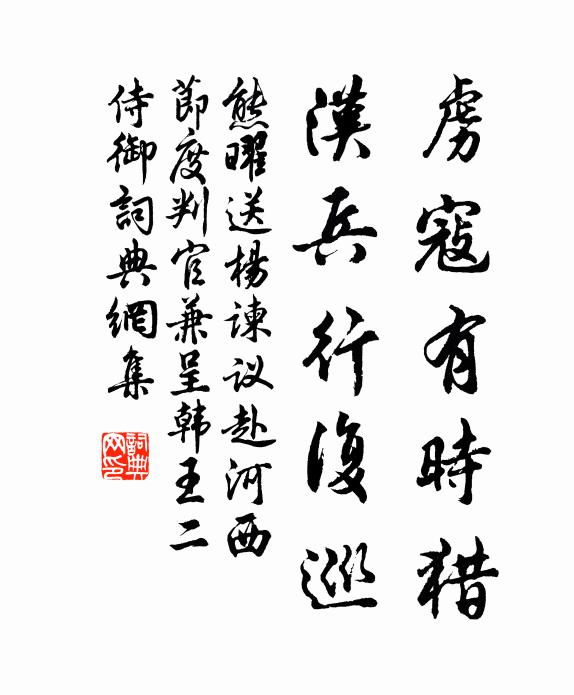 虏寇有時猎
漢兵行復巡
熊曜送楊諫议赴河西
節度判官兼呈韩王二
侍御詞典網集
詞典网印